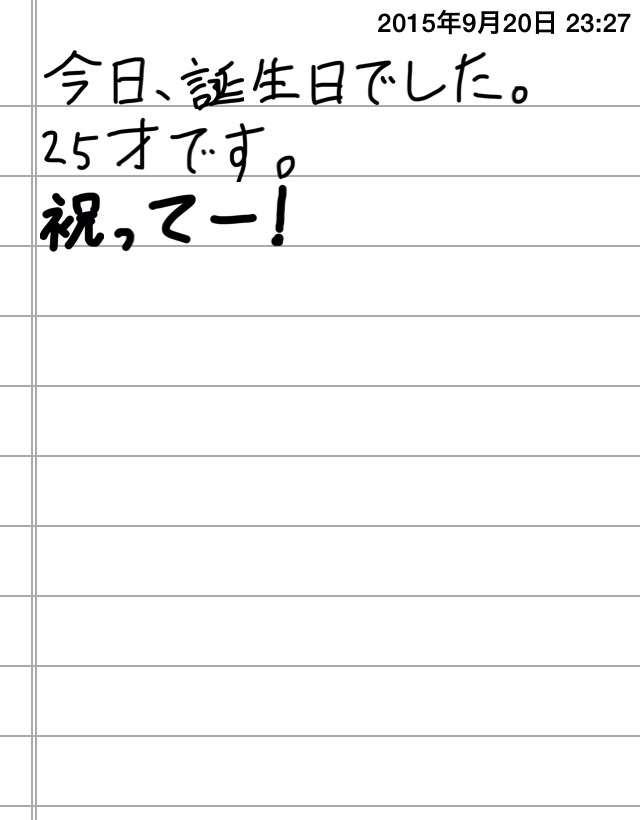 2015年9月20日 23:27
今日、誕生日でした。
25才です。
祝ってー!